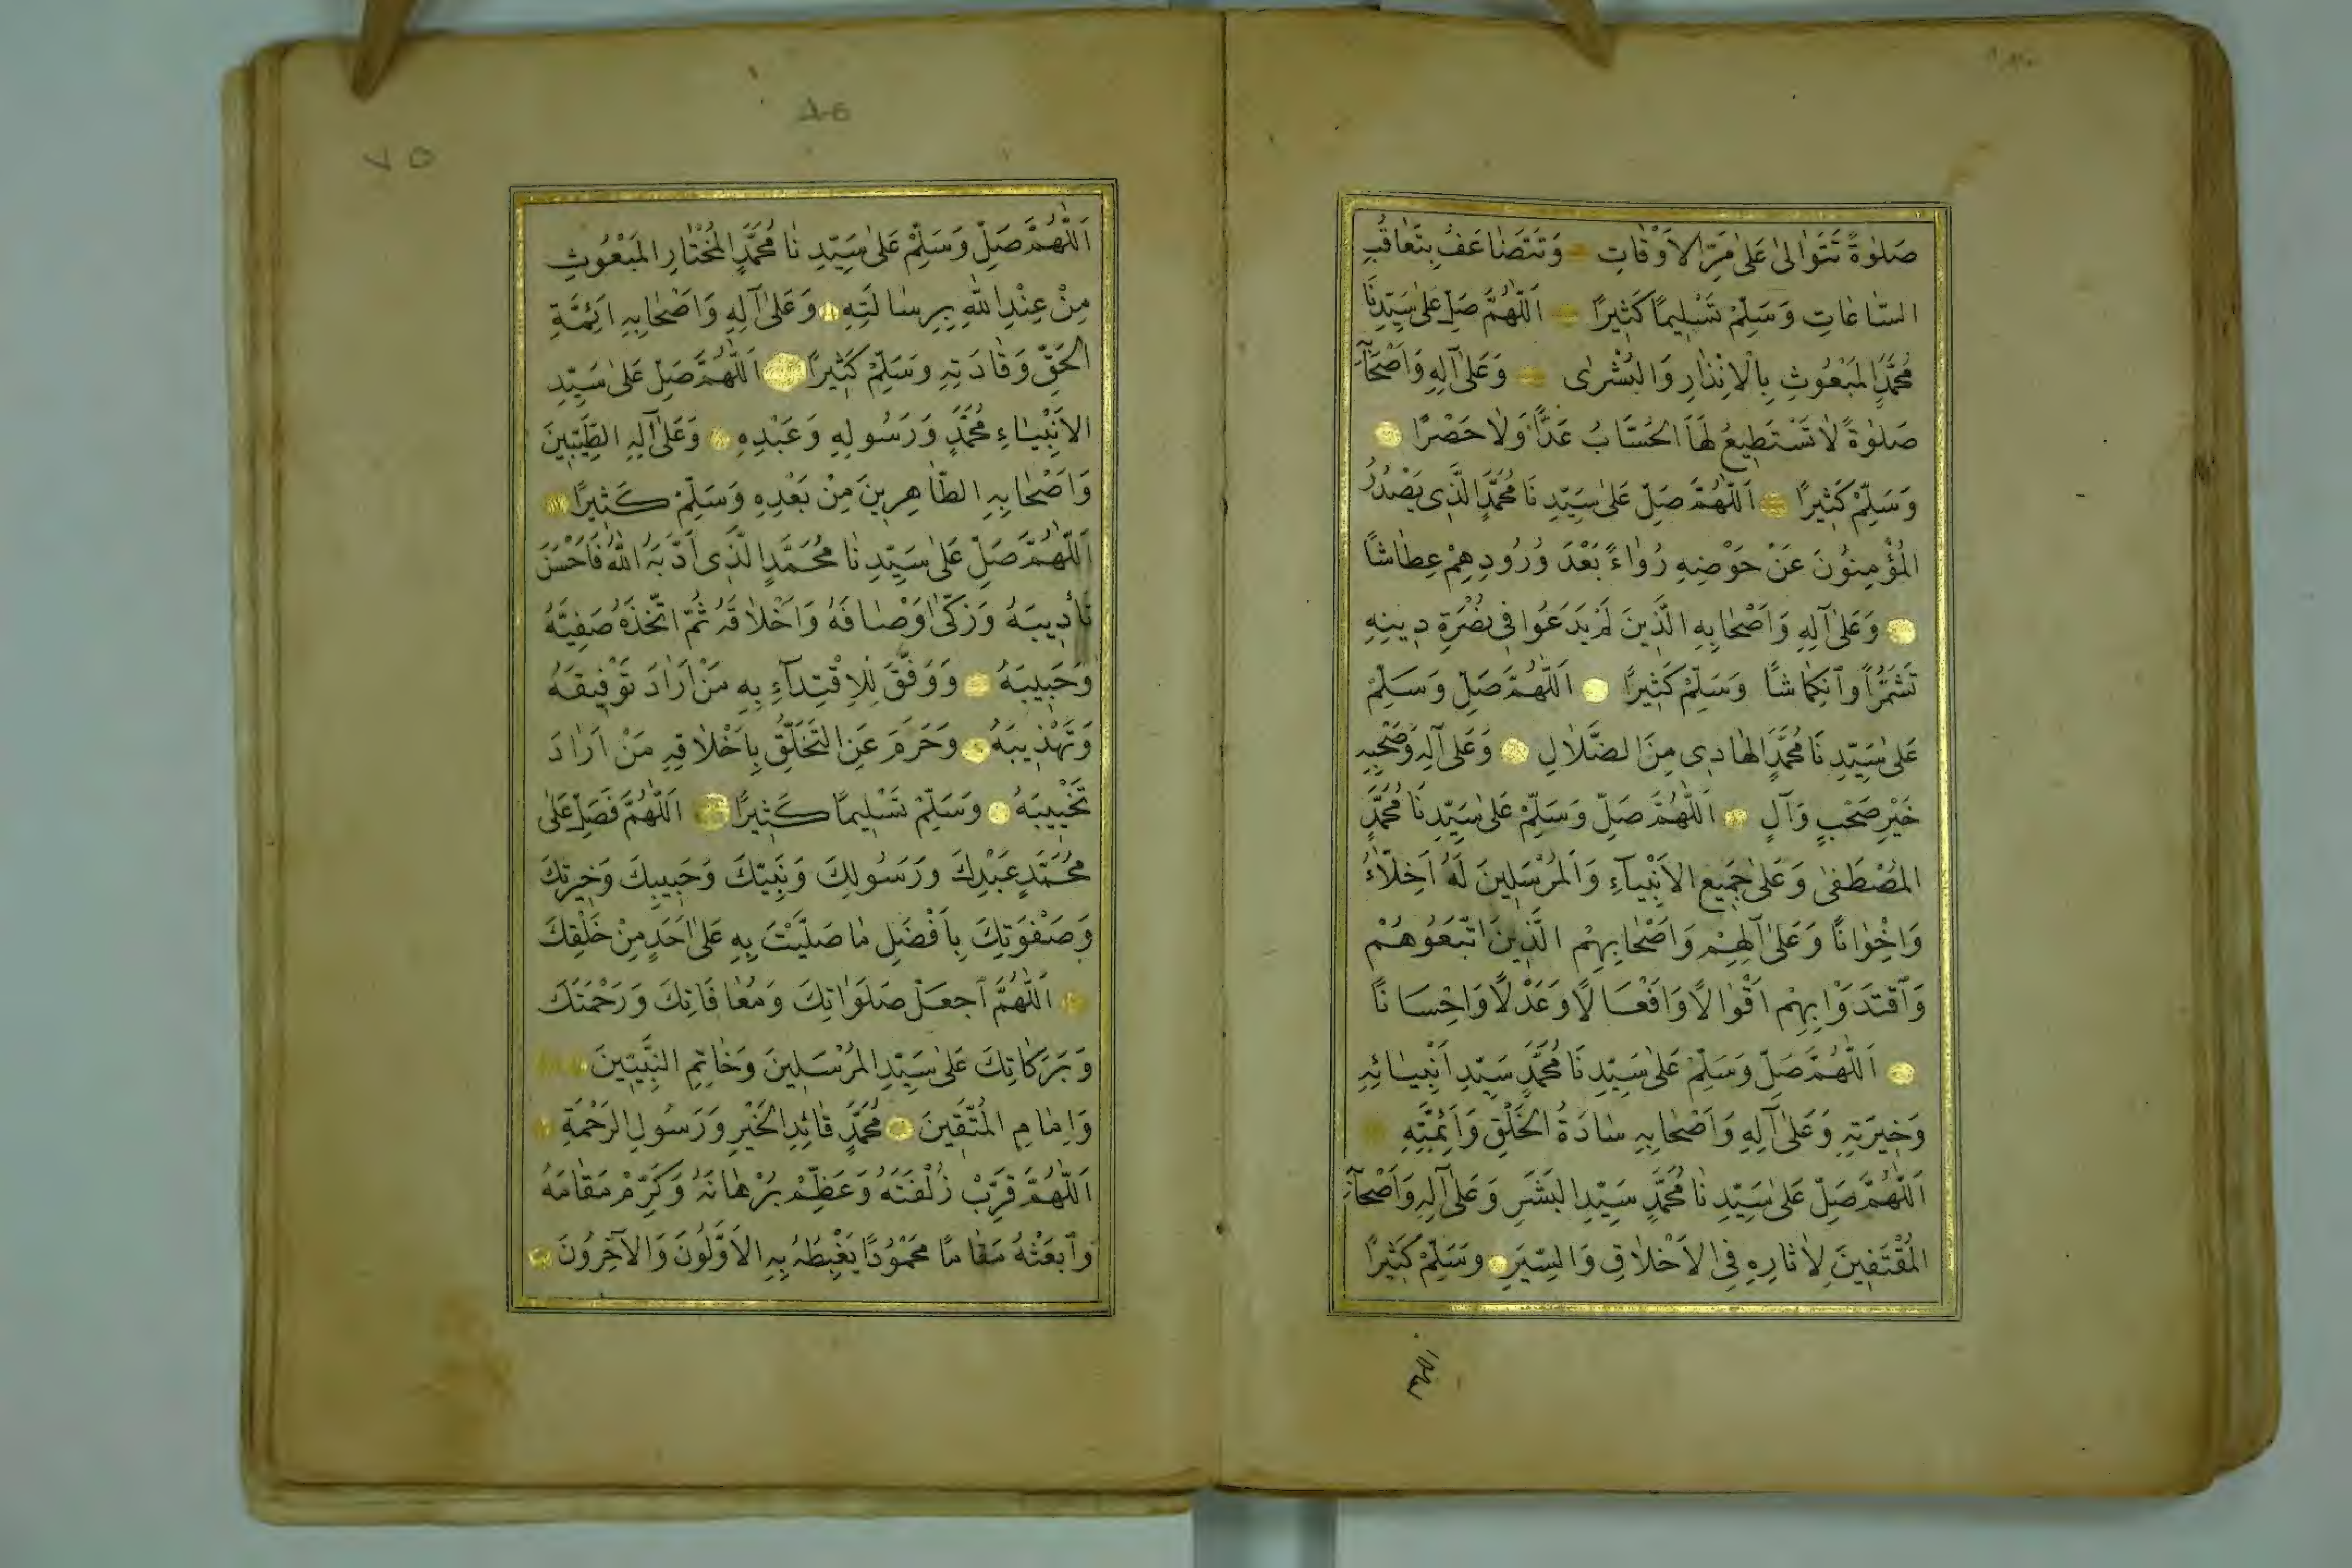 صَلٰوةً تَتَوَالىٰ عَلىٰ مَرِّ الاَوْقَاتِ وَتَتَضَاعَفُ بِتَعَاقُبِ
السَّاعَاتِ وَسَلِّمْ تَسْلِيمًا كَثِيرًا اَللّٰهُمَّ صَلِّ عَلىٰ سَيِّدِنَا
مُحَمَّدٍ المَبْعُوثِ بِالْاِنْذَارِ وَالبُشْرٰى وَعَلىٰ آلِهِ وَاَصْحَابِهِ
صَلٰوةً لَا تَسْتَطِيعُ لَهَا الحُسَّابُ عَدًّا وَلَا حَصْرًا
وَسَلِّمْ كَثِيرًا اَللّٰهُمَّ صَلِّ عَلىٰ سَيِّدِنَا مُحَمَّدٍ الَّذِى يَصْدُرُ
المُؤْمِنُونَ عَنْ حَوْضِهِ رُوَاءً بَعْدَ وُرُودِهِمْ عِطَاشًا
وَعَلىٰ آلِهِ وَاَصْحَابِهِ الَّذِينَ لَمْ يَدَعُوا فِى نُصْرَةِ دِينِهِ
تَشَمُّرًا وَٱنْكِمَاشًا وَسَلِّمْ كَثِيرًا اَللّٰهُمَّ صَلِّ وَسَلِّمْ
عَلىٰ سَيِّدِنَا مُحَمَّدٍ الهَادِى مِنَ الضَّلَالِ وَعَلىٰ آلِهِ وَصَحْبِهِ
خَيْرِ صَحْبٍ وَآلٍ اَللّٰهُمَّ صَلِّ وَسَلِّمْ عَلىٰ سَيِّدِنَا مُحَمَّدٍ
المُصْطَفىٰ وَعَلىٰ جَمِيعِ الاَنْبِيَآءِ وَالمُرْسَلِينَ لَهُ اَخِلَّاءُ
وَاِخْوَانًا وَعَلىٰ آلِهِمْ وَاَصْحَابِهِمْ الَّذِينَ اتَّبَعُوهُمْ
وَٱقْتَدَوْا بِهِمْ اَقْوَالًا وَاَفْعَالًا وَعَدْلًا وَاِحْسَانًا
اَللّٰهُمَّ صَلِّ وَسَلِّمْ عَلىٰ سَيِّدِنَا مُحَمَّدٍ سَيِّدِ اَنْبِيَائِهِ
وَخِيَرَتِهِ وَعَلىٰ آلِهِ وَاَصْحَابِهِ سَادَةُ الخَلْقِ وَاَئِمَّتِهِ
اَللّٰهُمَّ صَلِّ عَلىٰ سَيِّدِنَا مُحَمَّدٍ سَيِّدِ البَشَرِ وَعَلىٰ آلِهِ وَاَصْحَابِهِ
المُقْتَفِينَ لِاٰثَارِهِ فِى الاَخْلَاقِ وَالسِّيَرِ وَسَلِّمْ كَثِيرًا
اللهم
٧٥
اَللّٰهُمَّ صَلِّ وَسَلِّمْ عَلىٰ سَيِّدِنَا مُحَمَّدٍ المُخْتَارِ المَبْعُوثِ
مِنْ عِنْدِ اللهِ بِرِسَالَتِهِ وَعَلىٰ آلِهِ وَاَصْحَابِهِ اَئِمَّةِ
الحَقِّ وَقَادَتِهِ وَسَلِّمْ كَثِيرًا اَللّٰهُمَّ صَلِّ عَلىٰ سَيِّدِ
الاَنْبِيَاءِ مُحَمَّدٍ وَرَسُولِهِ وَعَبْدِهِ وَعَلىٰ آلِهِ الطَّيِّبِينَ
وَاَصْحَابِهِ الطَّاهِرِينَ مِنْ بَعْدِهِ وَسَلِّمْ كَثِيرًا
اَللّٰهُمَّ صَلِّ عَلىٰ سَيِّدِنَا مُحَمَّدٍ الَّذِى اَدَّبَهُ اللهُ فَاَحْسَنَ
تَأْدِيبَهُ وَزَكّىٰ اَوْصَافَهُ وَاَخْلَاقَهُ ثُمَّ اتَّخَذَهُ صَفِيَّهُ
وَحَبِيبَهُ وَوَفَّقَ لِلْاِقْتِدَآءِ بِهِ مَنْ اَرَادَ تَوْفِيقَهُ
وَتَهْذِيبَهُ وَحَرَمَ عَنِ التَّخَلُّقِ بِاَخْلَاقِهِ مَنْ اَرَادَ
تَخْيِيبَهُ وَسَلِّمْ تَسْلِيمًا كَثِيرًا اَللّٰهُمَّ فَصَلِّ عَلىٰ
مُحَمَّدٍ عَبْدِكَ وَرَسُولِكَ وَنَبِيِّكَ وَحَبِيبِكَ وَخِيرَتِكَ
وَصَفْوَتِكَ بِاَفْضَلِ مَا صَلَّيْتَ بِهِ عَلىٰ اَحَدٍ مِنْ خَلْقِكَ
اَللّٰهُمَّ ٱجْعَلْ صَلَوَاتِكَ وَمُعَافَاتِكَ وَرَحْمَتَكَ
وَبَرَكَاتِكَ عَلىٰ سَيِّدِ المُرْسَلِينَ وَخَاتِمِ النَّبِيِّينَ
وَاِمَامِ المُتَّقِينَ مُحَمَّدٍ قَائِدِ الخَيْرِ وَرَسُولِ الرَّحْمَةِ
اَللّٰهُمَّ قَرِّبْ زُلْفَتَهُ وَعَظِّمْ بُرْهَانَهُ وَكَرِّمْ مَقَامَهُ
وَٱبْعَثْهُ مَقَامًا مَحْمُودًا يَغْبِطُهُ بِهِ الاَوَّلُونَ وَالآخِرُونَ